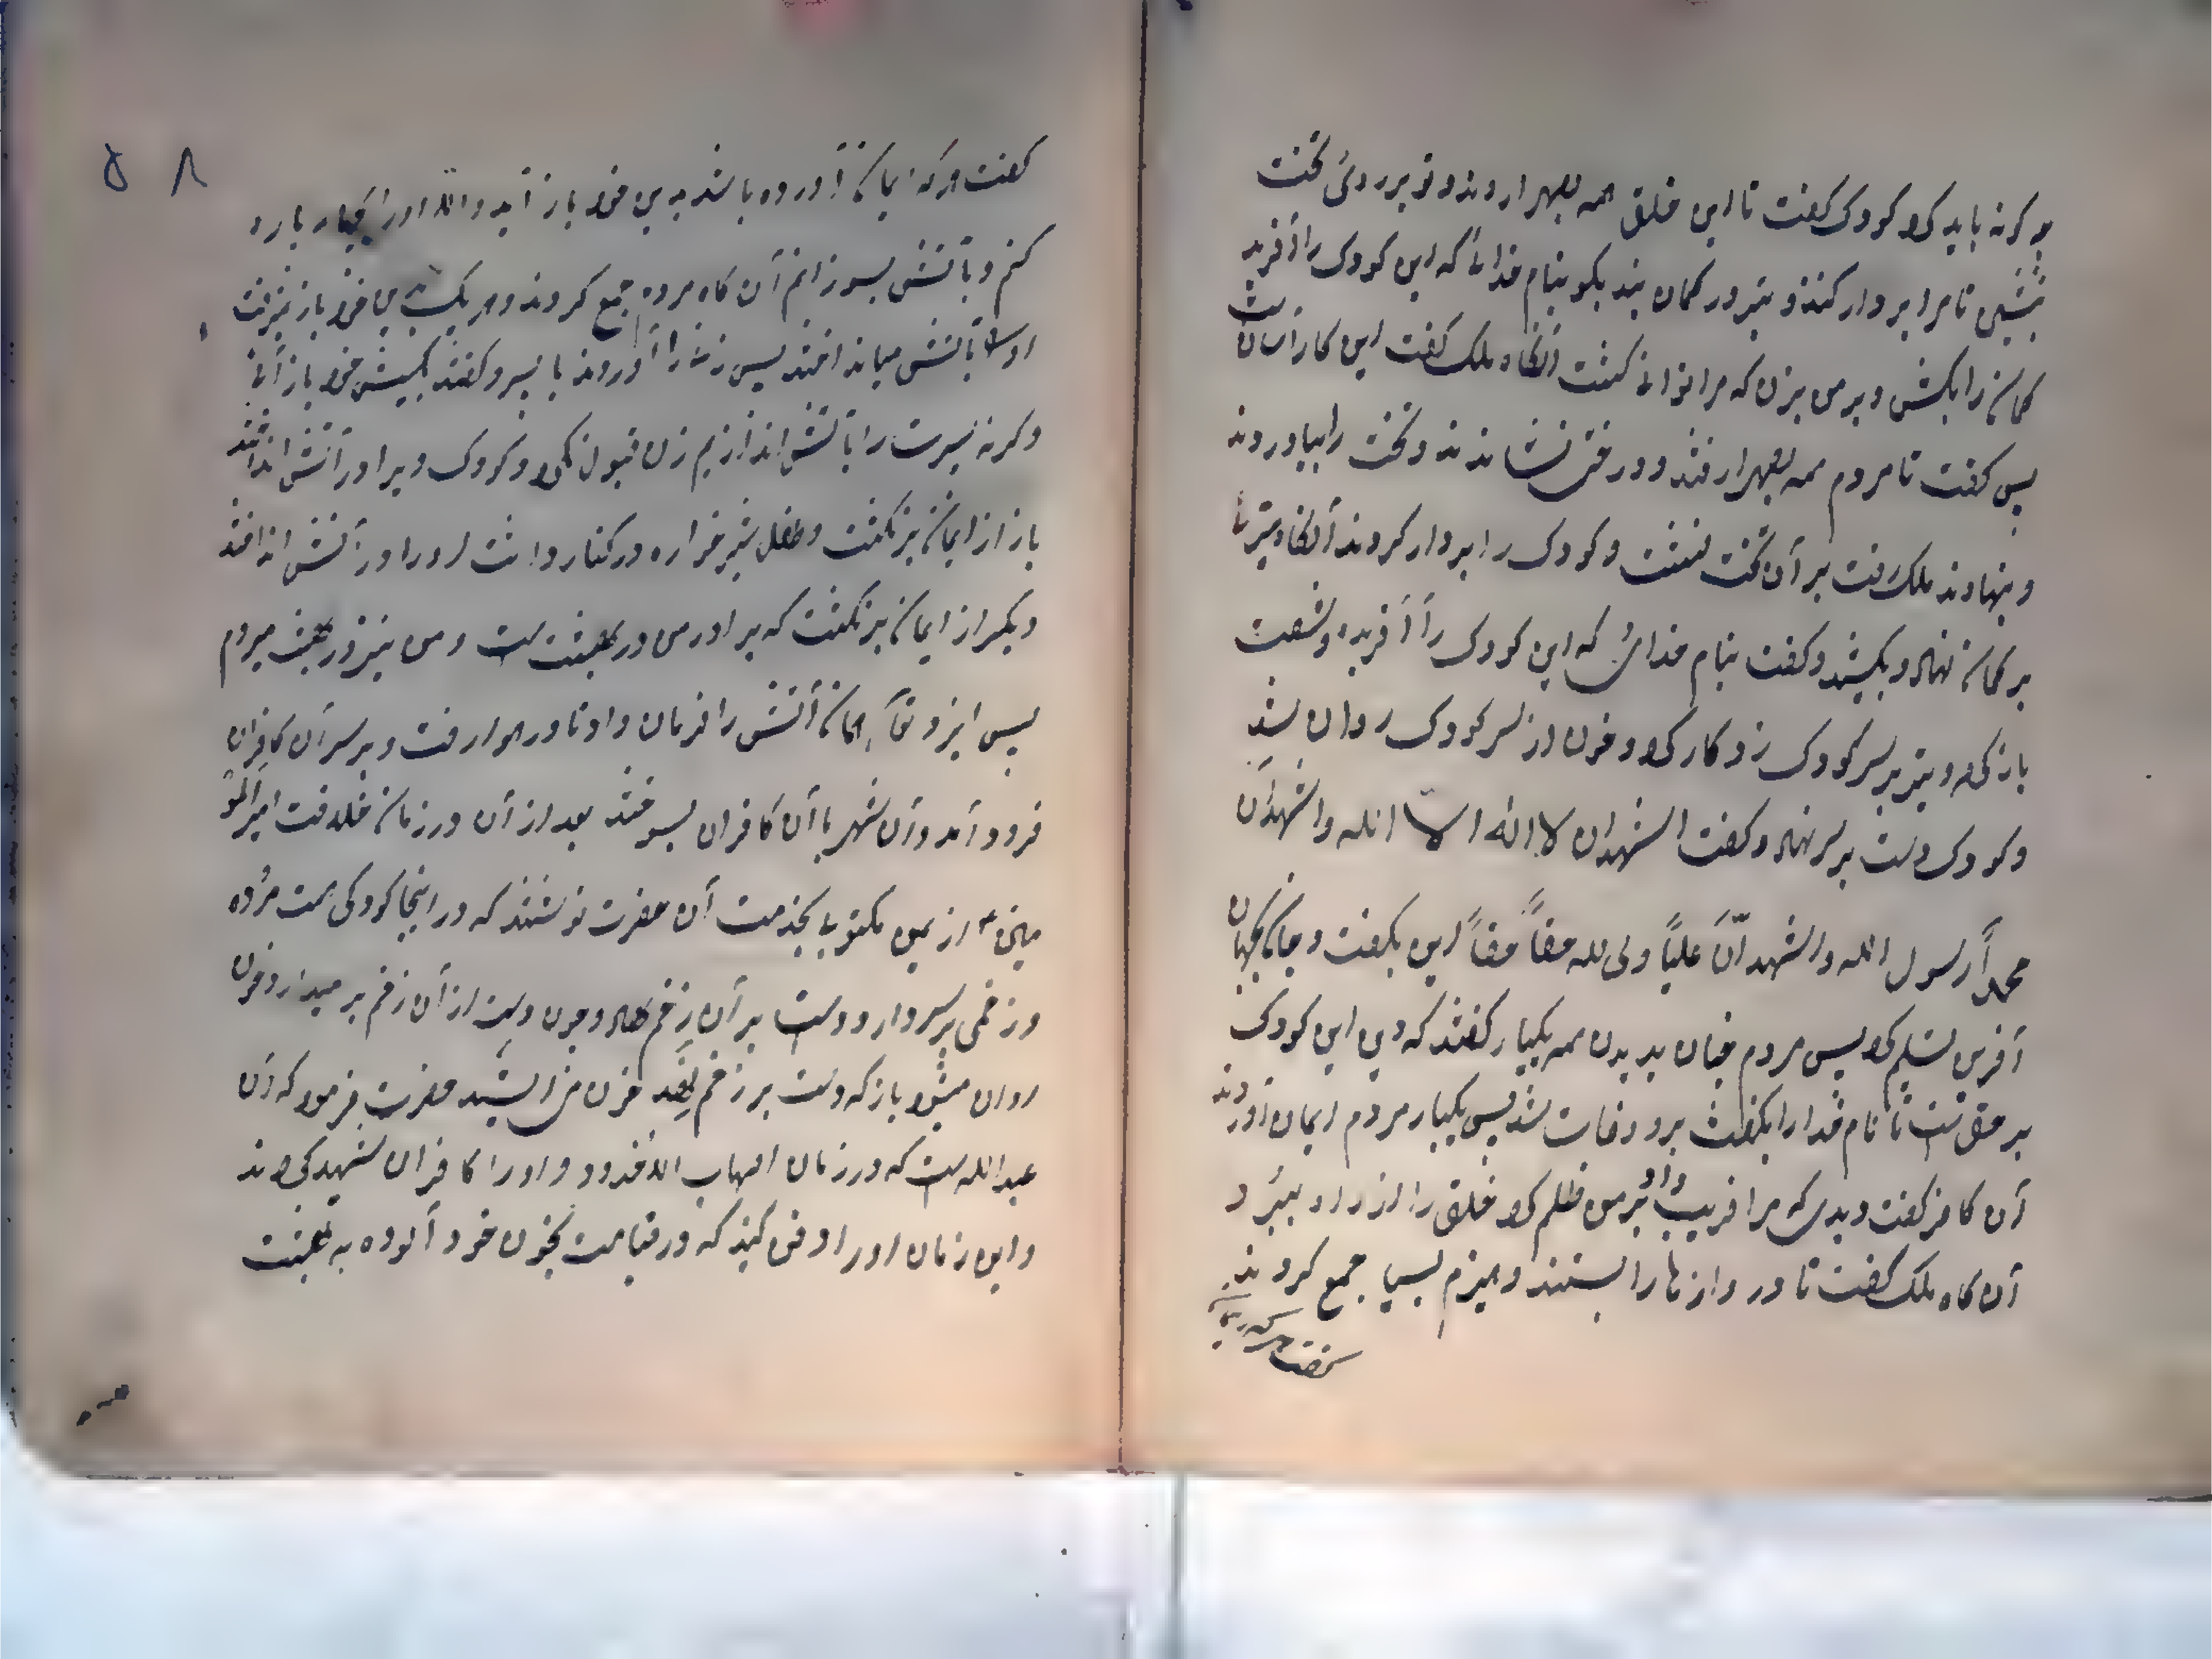 چه کرنه باید کرد کودک کفت تا این خلق همه بصحرا روند و تو بر روی تخت
بنشین تا مرا بر دار کنند و تیر در کمان بند بکو بنام خدائی که این کودک را آفرید
کمان را بکش و بر من بزن که مرا توانی کشت آنکاه ملک کفت این کار آسانست
پس کفت تا مردم همه بصحرا رفتند و درختی نشاندند و تخت را بیاوردند
و بنهادند ملک رفت بر آن تخت نشست و کودک را بر دار کردند آنکاه تیر را
بر کمان نهاد و بکشید و کفت بنام خدائی که این کودک را آفریده و شست
باز کرد و تیر بر سر کودک زد و کار کرد و خون از سر کودک روان شد
و کودک دست بر سر نهاد و کفت اشهد ان لا اله الا الله و اشهد ان
محمداً رسول الله و اشهد انّ علیّاً ولی الله حقاً حقاً این بکفت و جان بجهان
آفرین تسلیم کرد پس مردم چنان بدیدن همه یکبار کفتند که دین این کودک
بر حق است تا نام خدا را بکفت برو وفات شد پس یکبار مردم ایمان آوردند
آن کافر کفت دیدی که مرا فریب داد و بر من ظلم کرد خلق را از راه ببرد
آن کاه ملک کفت تا دروازها را بستند و هیزم بسیا جمع کردند
کفت هر که ایما
۵۸
کفت هر که ایمان آورده باشد بدین خود باز آید والا او را یکبار پاره
کنم و بآتش بسوزانم آن کاه مردم جمع کردند و هر یک بدین خود باز نیرفت
او را بآتش میانداختند پس زنی را آوردند با پسر و کفتند بکیش خود باز آئی
وکرنه پسرت را بآتش اندازیم زن قبول نکرد و کودک ویرا در آتش انداختند
باز از ایمان برنکشت و طفل شیر خواره در کنار داشت او را در آتش انداختند
دیکر از ایمان برنکشت که برادر من در بهشت است و من نیز در بهشت میروم
پس ایزد تعآ همان آتش را فرمان داد تا در هوا رفت و بر سر آن کافران
فرود آمد و آن شهر با آن کافران بسوختند بعد از آن در زمان خلافت امیر المؤ
منین ع از یمن مکتوب بخدمت آن حضرت نوشتند که در اینجا کودکی هست مرده
و زخمی بر سر دارد و دست بر آن زخم نهاد و چون دست از آن زخم بر میدارد خون
روان میشود باز که دست بر زخم نهد خون می ایستد حضرت فرمود که آن
عبدالله است که در زمان اصحاب الاخدود و او را کافران شهید کردند
و این زمان او را دفن کنید که در قیامت بخون خود آلوده به بهشت